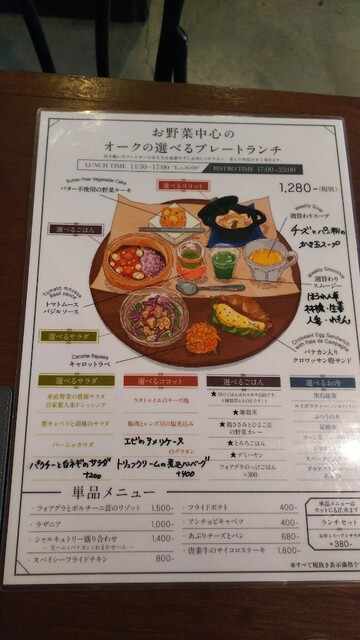 お野菜中心の
オークの選べるプレートランチ
LUNCH TIME 11:30-17:00
BISTRO TIME 17:00-23:00
選べるココット
1,280-(税別)
Butter-free Vegetable Cake
バター不使用の野菜ケーキ
Weekly Soup
週替わりスープ
チーズとパン粉の
かき玉スープ
選べるごはん
Weekly Smoothie
週替わり
スムージー
ほうれん草
林檎・生姜
人参・れもん
Tomato mousse
Basil sauce
トマトムース
バジルソース
選べるサラダ
Carotte Rapees
キャロットラペ
Croissant Egg Sandwich
with Pate de Campagne
パテカン入り
クロワッサン卵サンド
選べるサラダ
選べるココット
選べるごはん
選べるお冷
自家製人参ドレッシング
バーニャカウダ
パクチーと白ネギのサラダ
+70
ラタトゥイユのチーズ焼
豚肉とレンズ豆の塩煮込み
エビのアメリケーヌ
のグラタン
トリュフクリームの煮込ハンバーグ
+400
★雑穀米
★鶏ささみとひよこ豆
の野菜カレー
★とろろごはん
★デミハヤシ
フォアグラのっけごはん
+300
単品メニュー
・フォアグラとポルチーニ茸のリゾット 1,500-
・ラザニア 1,000-
・シャルキュトリー盛り合わせ 1,400-
・スパイシーフライドチキン 800-
・フライドポテト 400-
・アンチョビキャベツ 400-
・あぶりチーズとパン 680-
・唐津牛のサイコロステーキ 1,800-
単品メニューは
セットにも出来ます
ランチセット
+380-
※すべて税抜き表示価格です